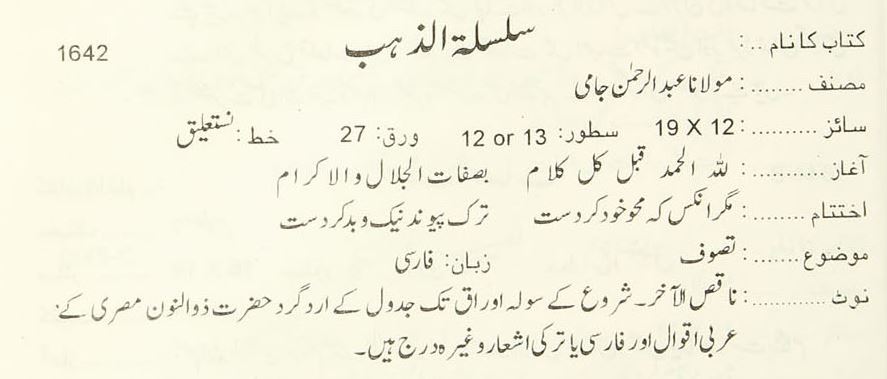 کتاب کا نام ..: سلسلۃ الذہب 1642
مصنف ........: مولانا عبدالرحمٰن جامی
سائز ..........: 19 X 12 سطور: 12 or 13 ورق: 27 خط: نستعلیق
آغاز ..........: للہ الحمد قبل کل کلام بصفات الجلال والاکرام
اختتام ........: مگر انکس کہ محو خود کردست ترک پیوند نیک و بد کردست
موضوع ......: تصوف زبان: فارسی
نوٹ ............: ناقص الآخر۔ شروع کے سولہ اوراق تک جدول کے اردگرد حضرت ذوالنون مصری کے
عربی اقوال اور فارسی یا ترکی اشعار وغیرہ درج ہیں۔